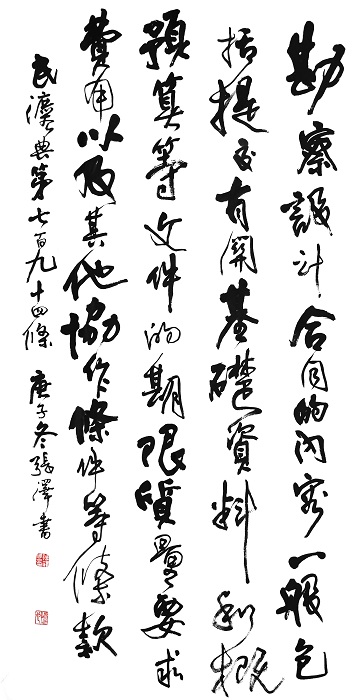 勘察設計合同的內容一般包
括提交有關基礎資料和概
預算等文件的期限質量要求
費用以及其他協作條件等條款
民濃典第七百九十四條 庚子冬張澤書